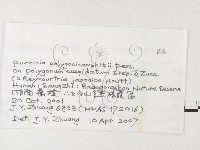 Puccinia polygoni-amphibii Pers.
On Polygonum cuspidatum Sieb. & Zucc.
(= Reynoutria japonica Houtt.)
Hunan, Sangzhi: Badagongshan Nature Reserve
湖南桑植
20 Oct. 2001
J. Y. Zhuang 6803 (HMAS 172016)
Det. J. Y. Zhuang 10 Apr 2007